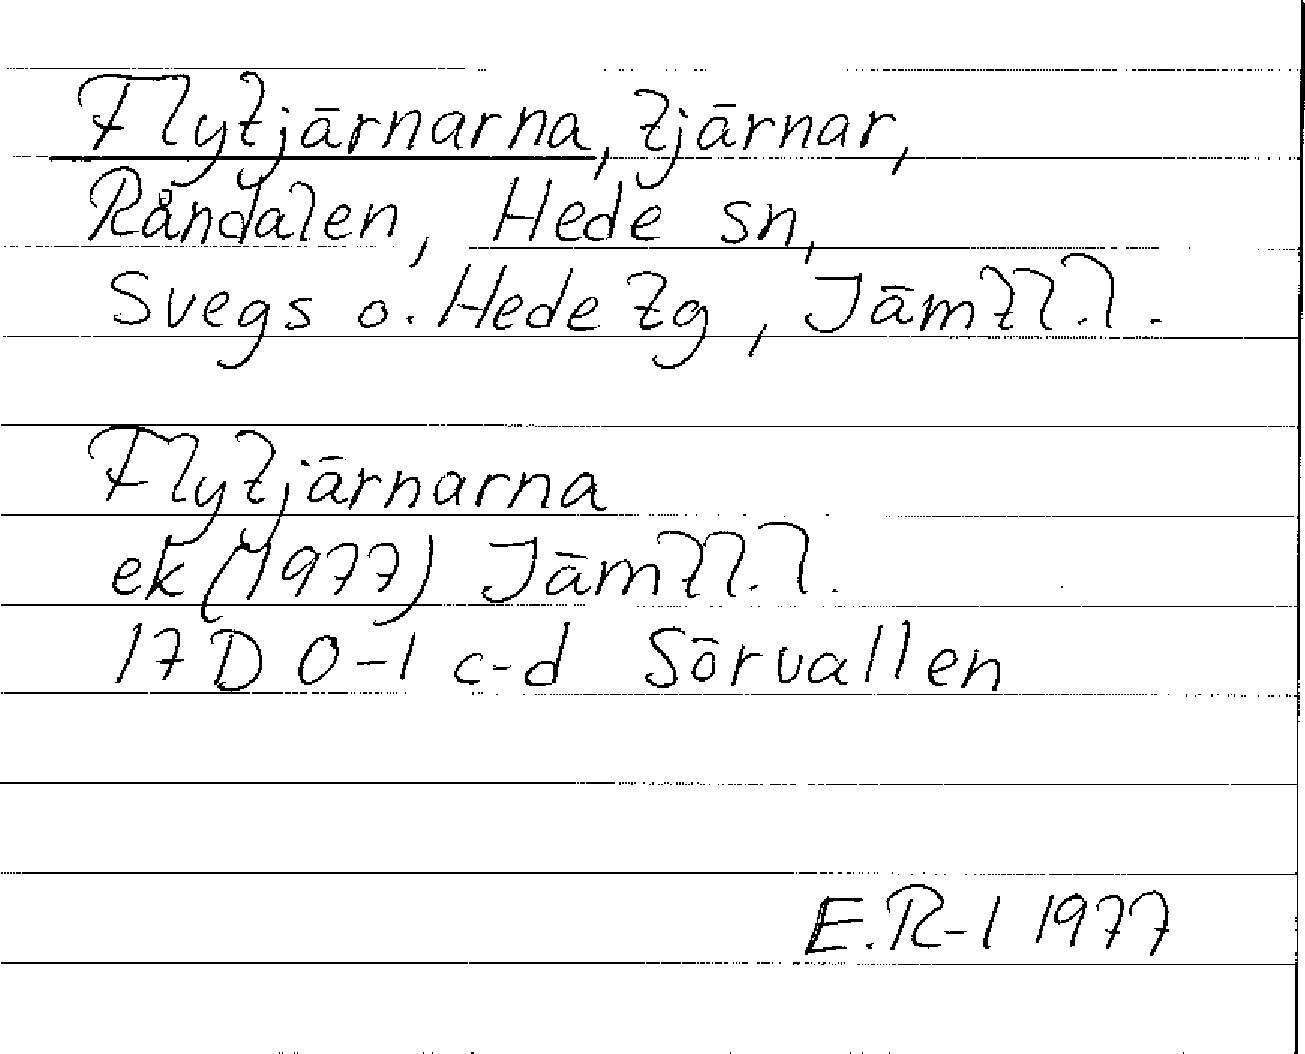 Flytjärnarna, tjärnar,
Råndalen, Hede sn,
Svegs o. Hede tg, Jämtl.l.
Flytjärnarna
ek (1977) Jämtl.l.
17 D 0-1 c-d Sörvallen
E.R-l 1977